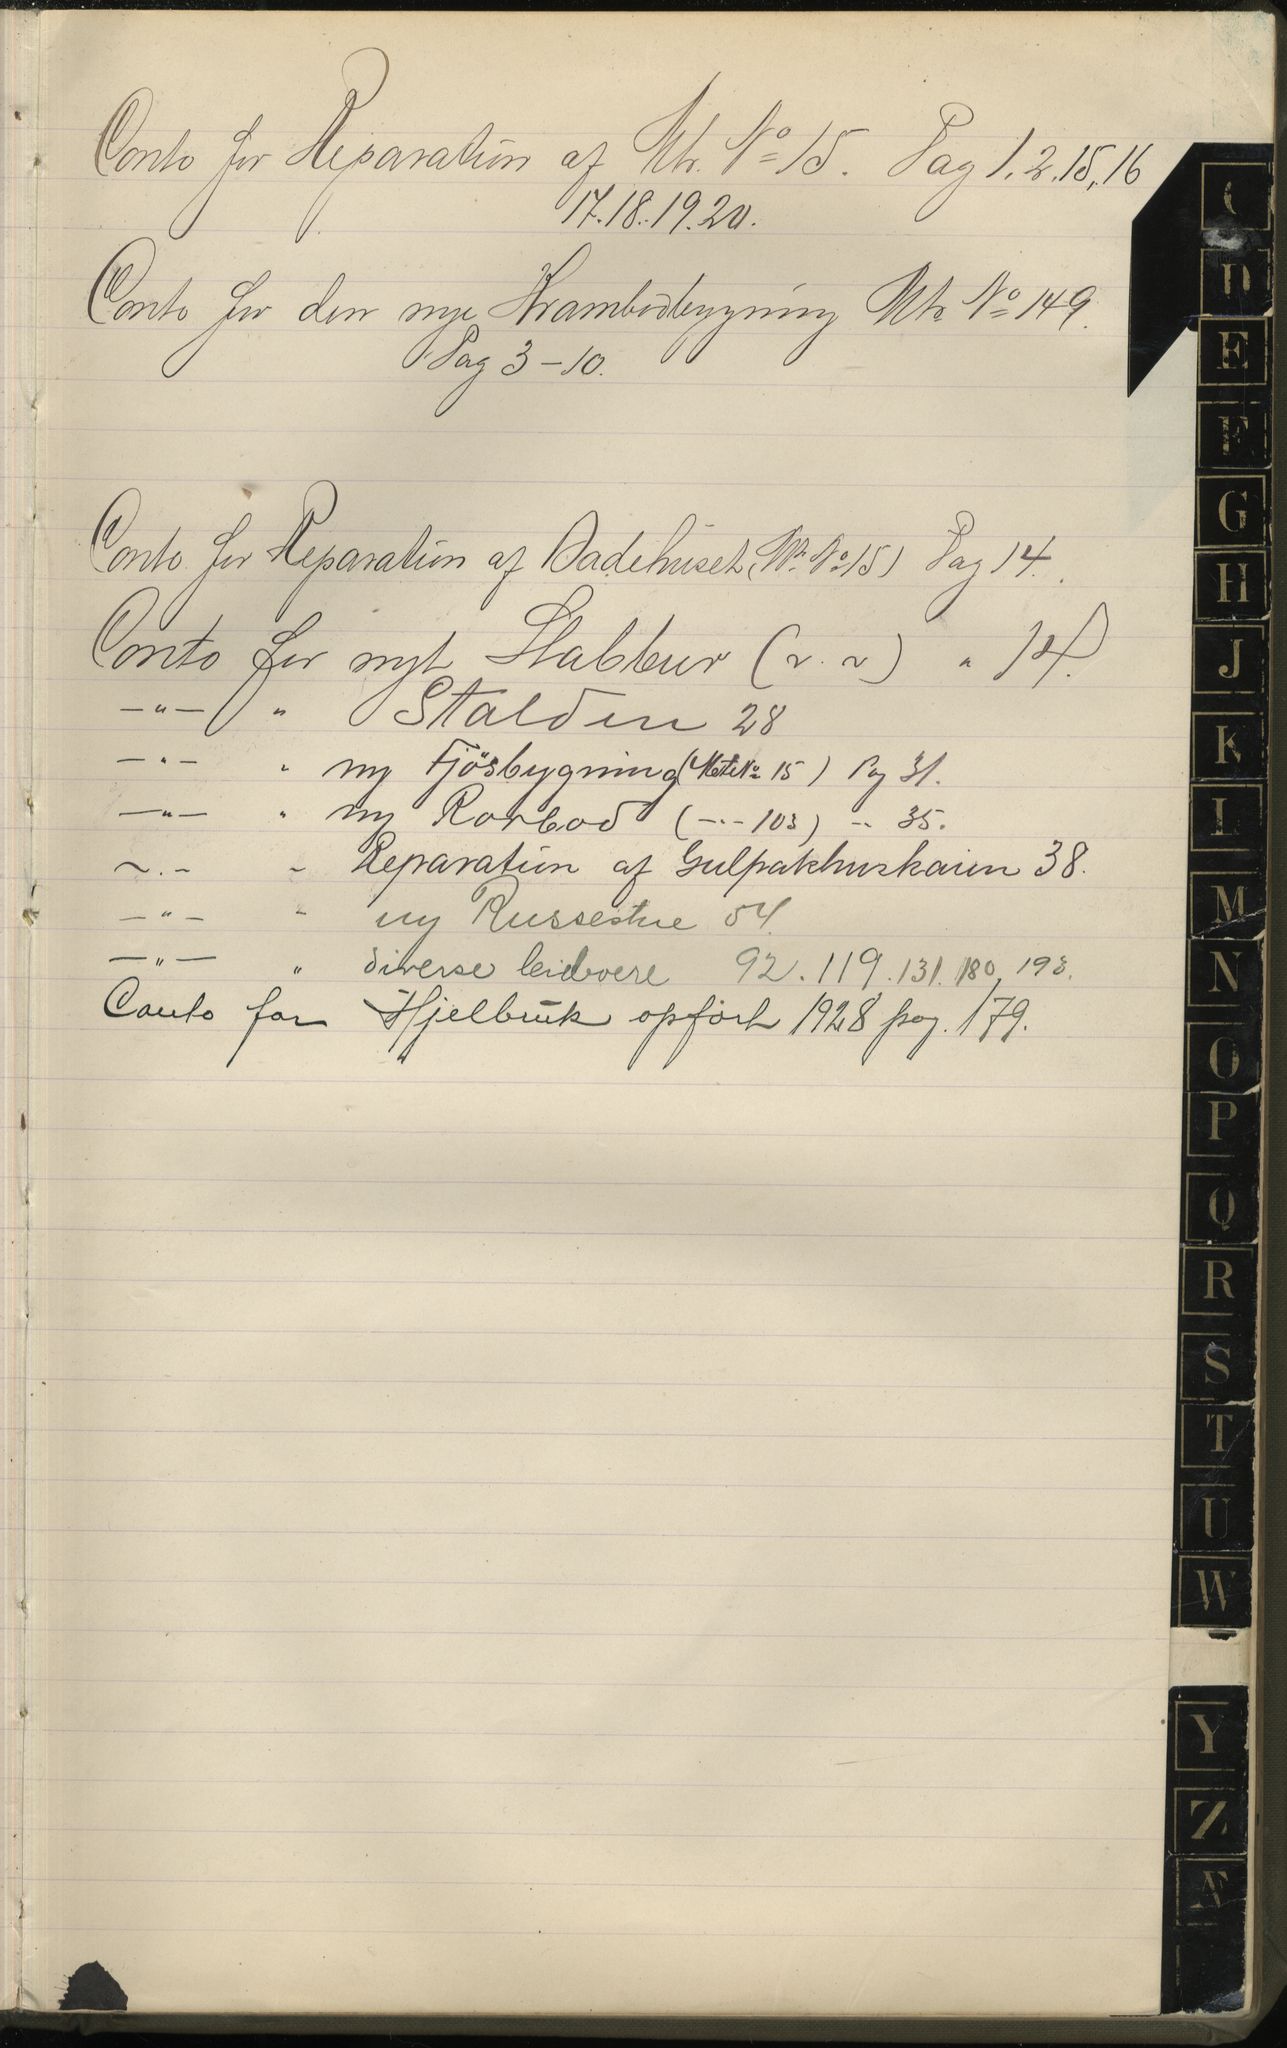 Conto for Reparation af Mtr. No 15. Pag 1, 2, 15, 16
17. 18. 19. 20.
Conto for den nye Krambodbygning Mtr No 149.
Pag 3 – 10.
Conto for Reparation af Badehuset (Mtr. No 15) Pag 14.
Conto for nyt Stabbur (" . ") " 14.
–"– " Stalden 28
–"– " ny Fjösbygning (Mtr No 15) Pag 31.
–"– " ny Rorbod (–"– 103) –"– 35.
–"– " Reparation af Gulpakhuskaien 38.
–"– " ny Russestue 54.
–"– " diverse 92. 119. 131. 180, 193.
Conto for Hjelbruk opfört 1928 pag. 179.
C
D
E
F
G
H
J
K
L
M
N
O
P
Q
R
S
T
U
W
Y
Z